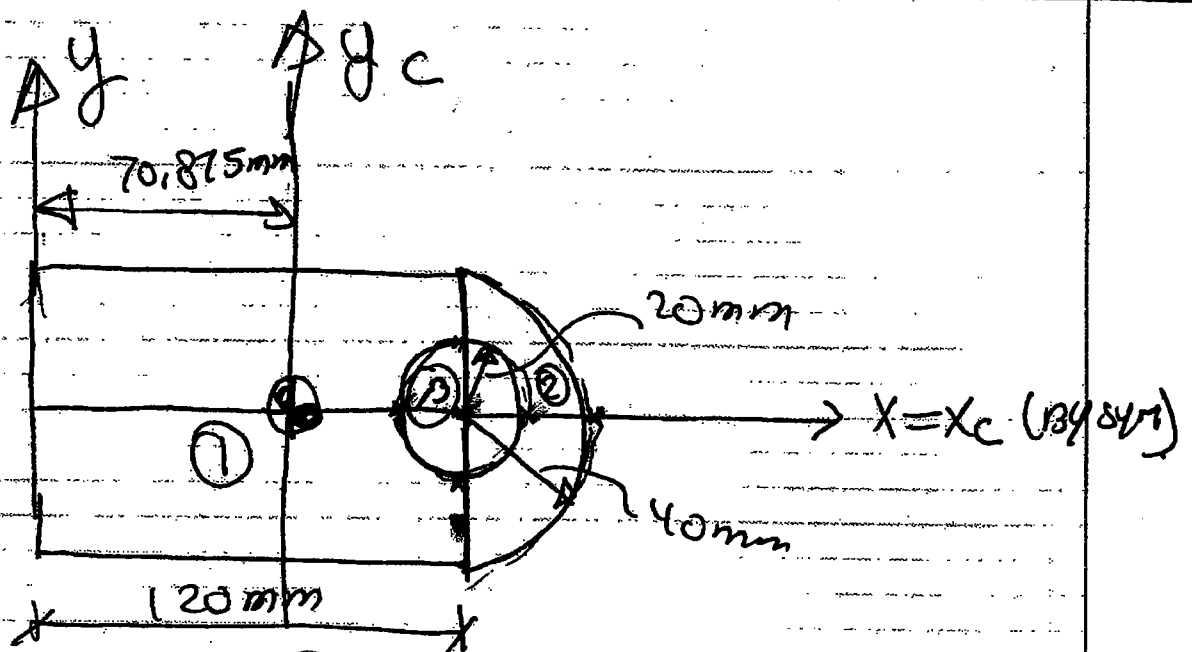 y
yc
70.875mm
20mm
3
2
X=Xc (BY SYM)
1
40mm
120mm